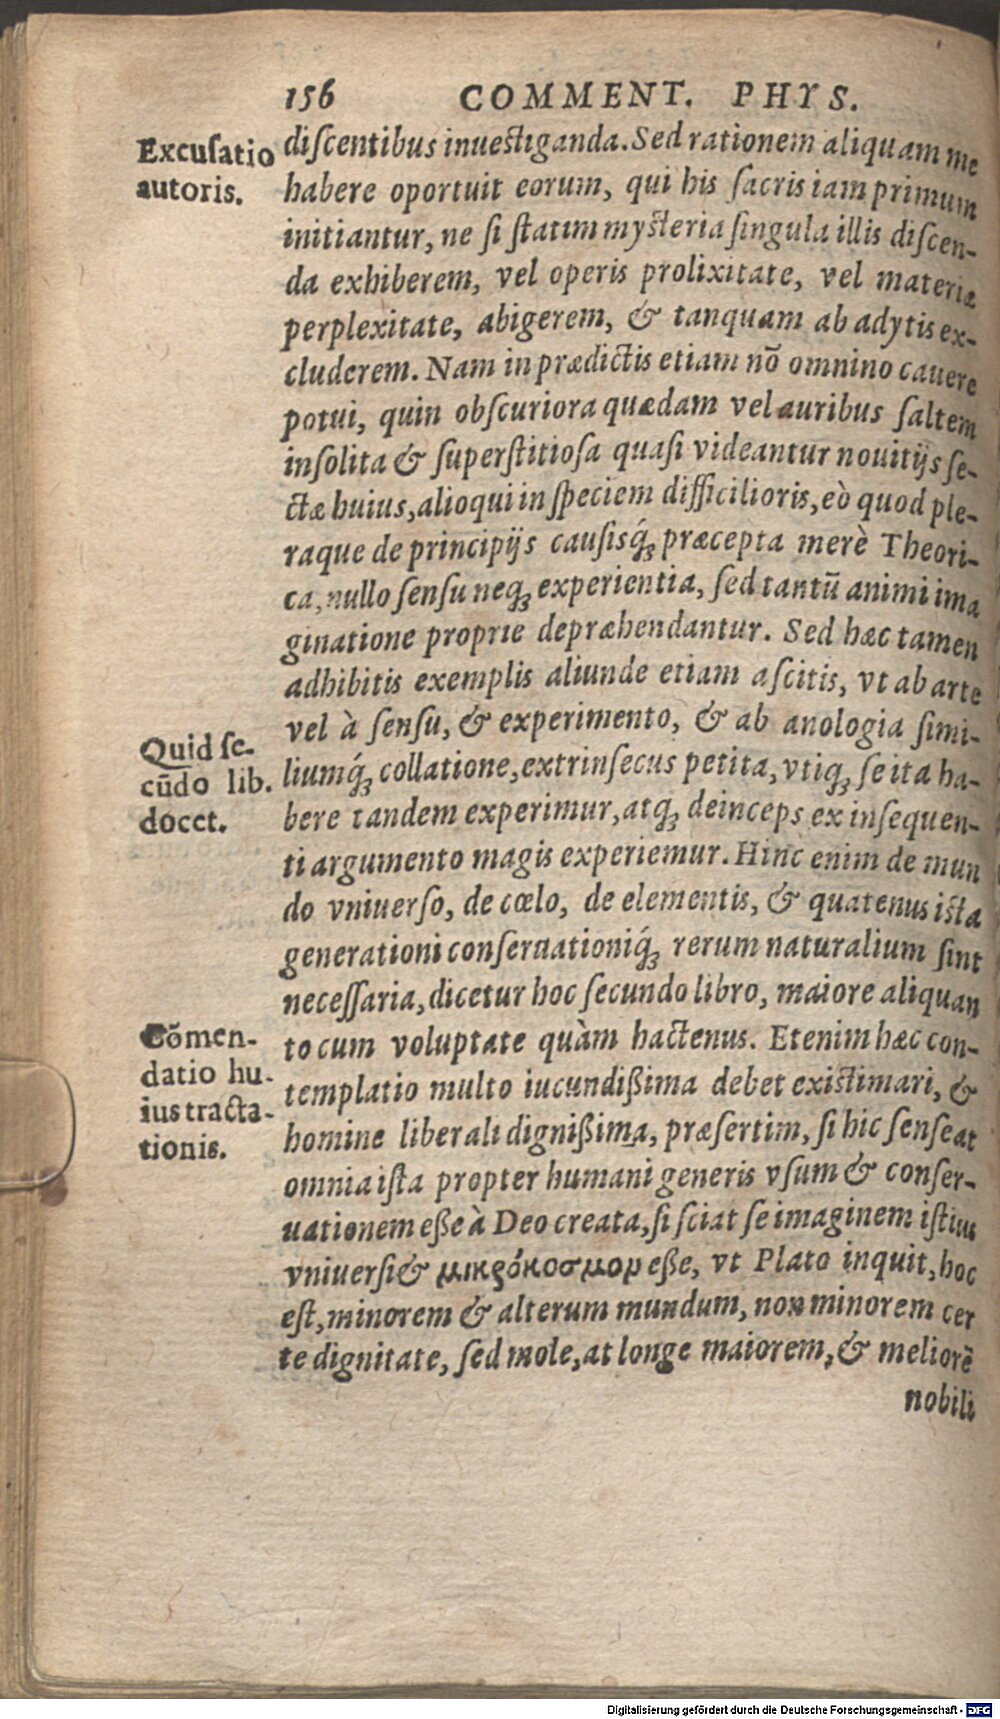 156 COMMENT. PHYS.
Excuſatio
autoris.
diſcentibus inueſtiganda. Sed rationem aliquam me
habere oportuit eorum, qui his ſacris iam primum
initiantur, ne ſi ſtatim myſteria ſingula illis diſcen-
da exhiberem, vel operis prolixitate, vel materiæ
perplexitate, abigerem, & tanquam ab adytis ex-
cluderem. Nam in prædictis etiam nõ omnino cauere
potui, quin obſcuriora quædam vel auribus ſaltem
inſolita & ſuperſtitioſa quaſi videantur nouitijs ſe-
ctæ huius, alioqui in ſpeciem difficilioris, eò quod ple-
raque de principijs cauſisq́; præcepta merè Theori-
ca, nullo ſenſu neq; experientia, ſed tantũ animi ima
ginatione proprie depræhendantur. Sed hæc tamen
adhibitis exemplis aliunde etiam aſcitis, vt ab arte
vel à ſenſu, & experimento, & ab anologia ſimi-
Quid ſe-
cũdo lib.
docet.
liumq́; collatione, extrinſecus petita, vtiq; ſe ita ha-
bere tandem experimur, atq; deinceps ex inſequen-
ti argumento magis experiemur. Hinc enim de mun
do vniuerſo, de cœlo, de elementis, & quatenus iſta
generationi conſeruationiq́; rerum naturalium ſint
neceſſaria, dicetur hoc ſecundo libro, maiore aliquan
Cõmen-
datio hu-
ius tracta-
tionis.
to cum voluptate quàm hactenus. Etenim hæc con-
templatio multo iucundißima debet exiſtimari, &
homine liberali dignißima, præſertim, ſi hic ſenſeat
omnia iſta propter humani generis vſum & conſer-
uationem eße à Deo creata, ſi ſciat ſe imaginem iſtius
vniuerſi & μικρόκοσμον eße, vt Plato inquit, hoc
eſt, minorem & alterum mundum, non minorem cer
te dignitate, ſed mole, at longe maiorem, & meliorẽ
nobili
Digitalisierung gefördert durch die Deutsche Forschungsgemeinschaft - DFG